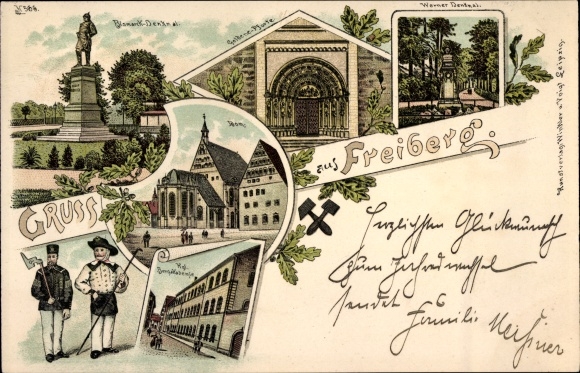 K 564.
Bismarck-Denkmal.
Goldene-Pforte
Werner Denkmal.
Dom.
Kgl.
Bergakademie.
GRUSS
aus Freiberg.
Kunstverlag Winkler u. Voigt Leipzig.
Herzlichsten Glückwunsch
zum Jahreswechsel
sendet
Familie Meissner